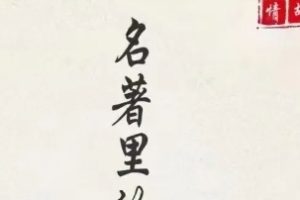 名著里
情